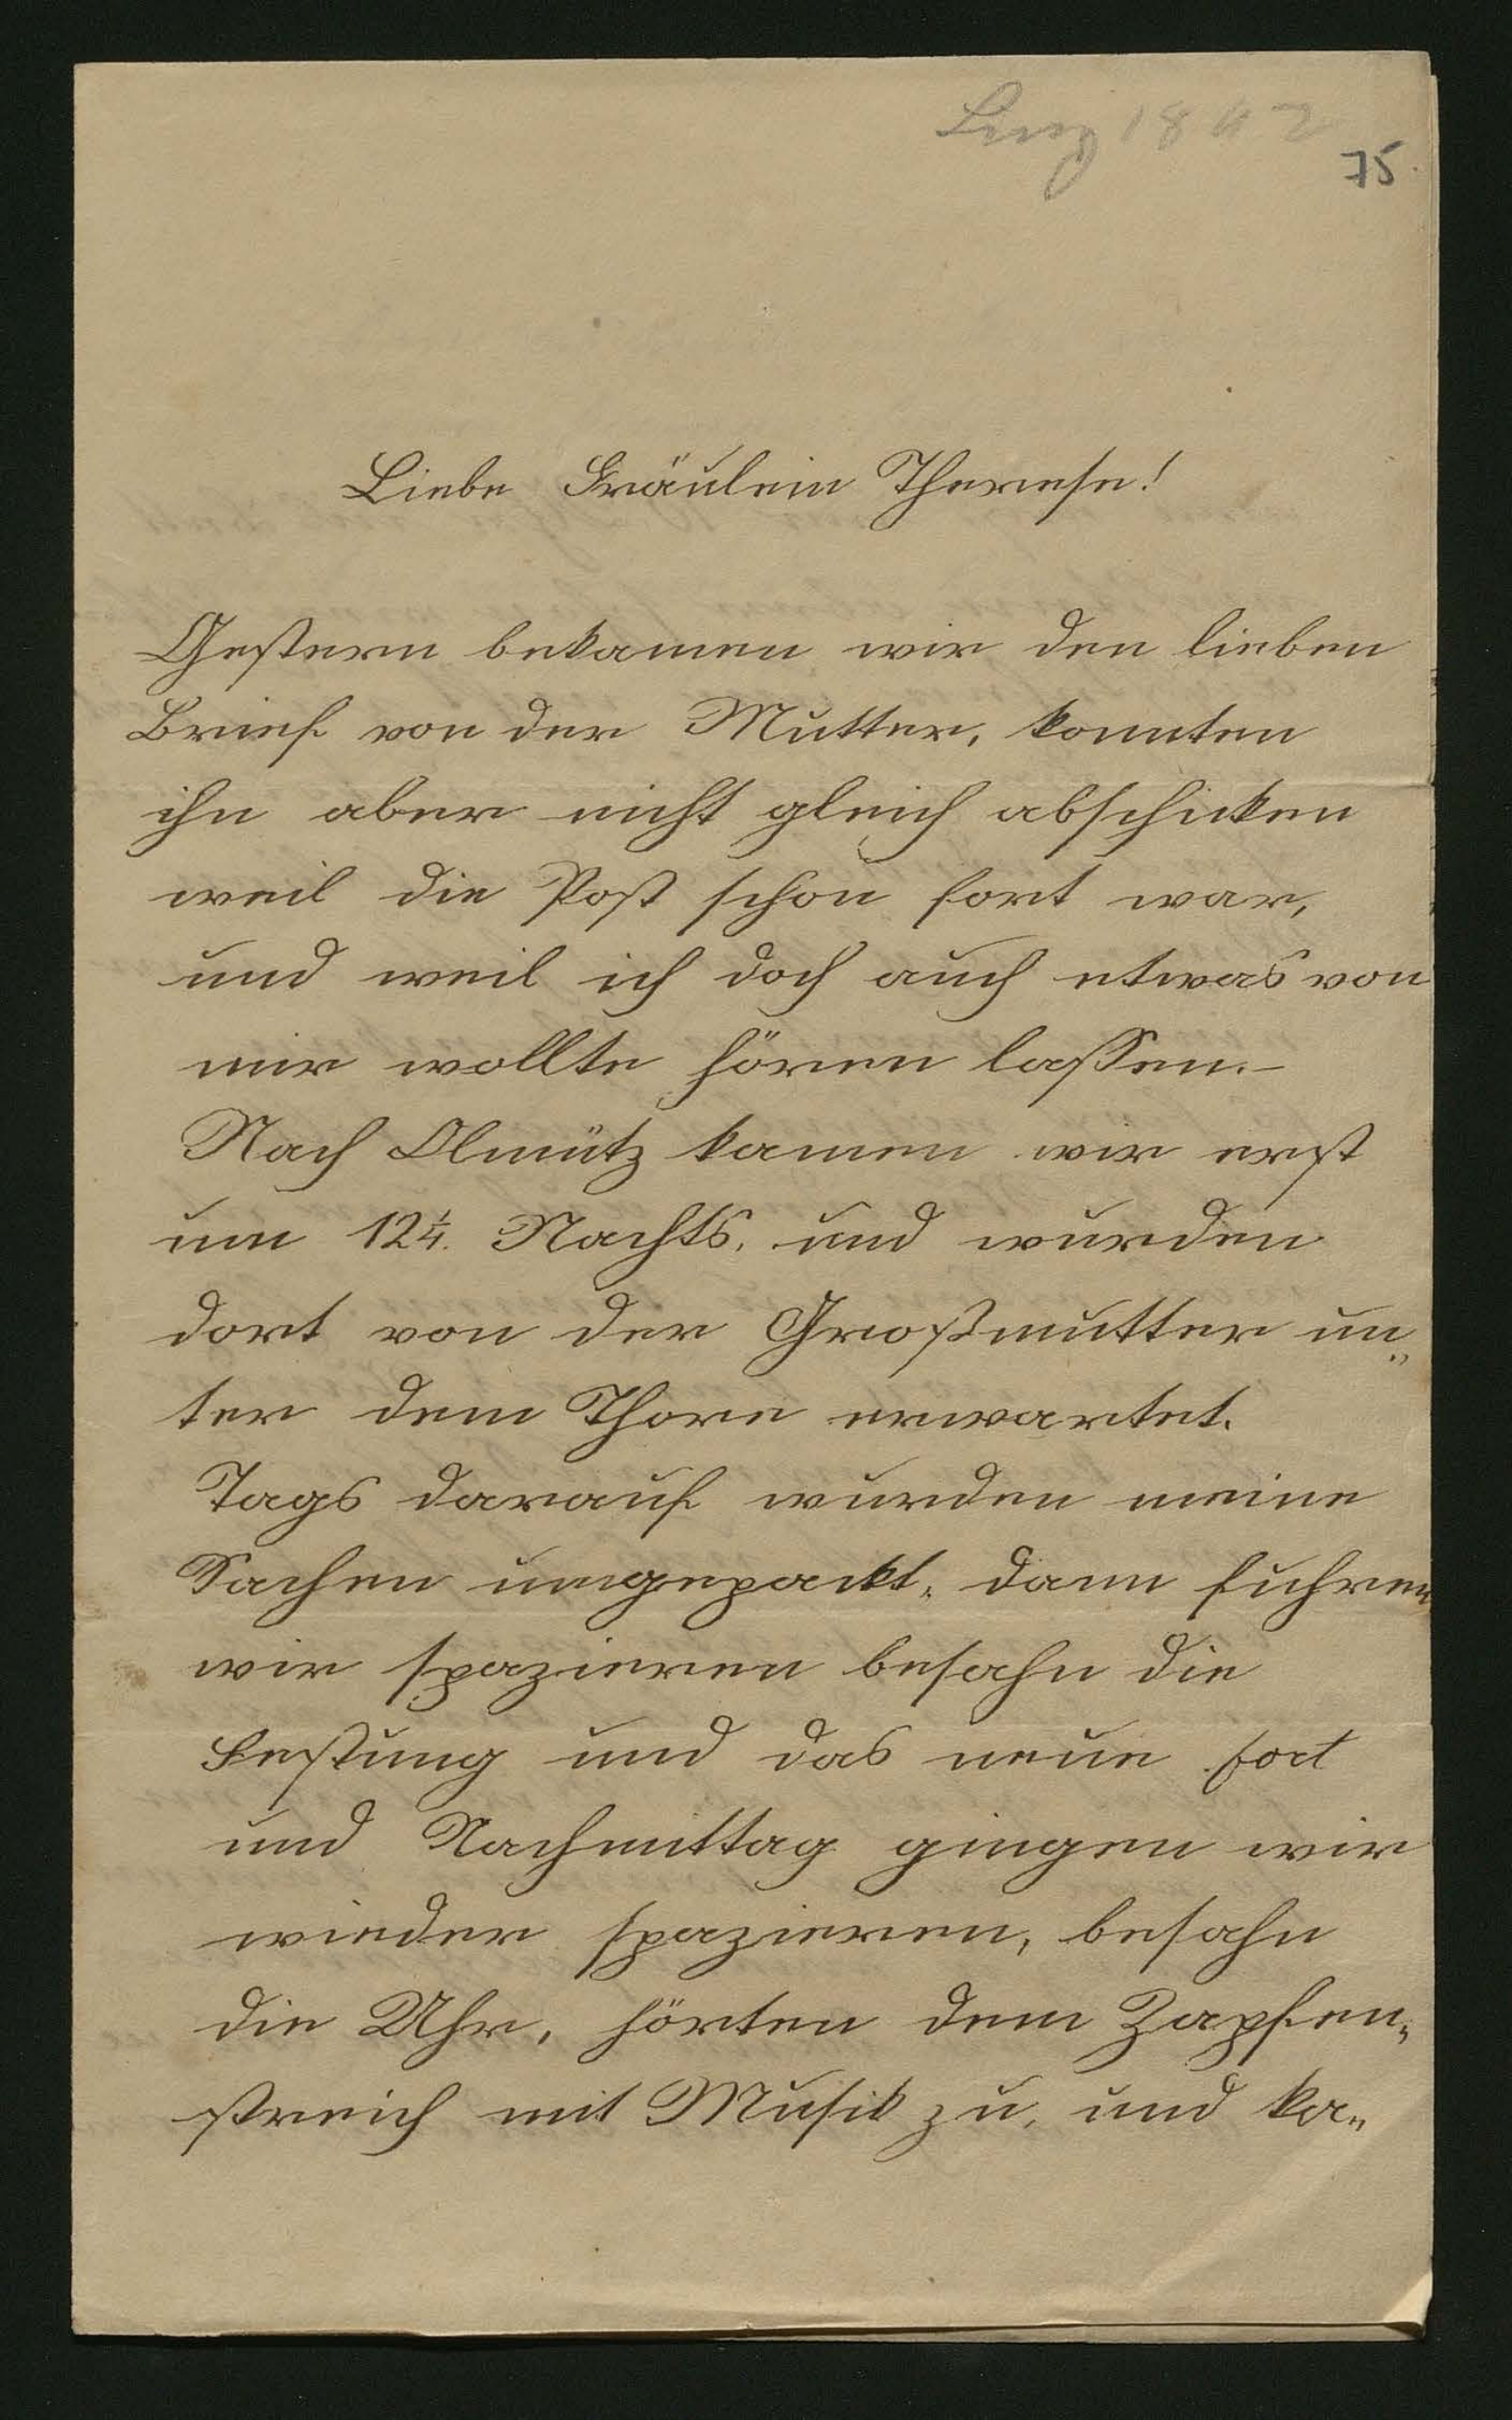 75.
Liebe Fräulein Therese!
Gestern bekamen wir den lieben
Brief von der Mutter, konnten
ihn aber nicht gleich abschicken
weil die Post schon fort war,
und weil ich doch auch etwas von
mir wollte hören lassen.–
Nach Olmütz kamen wir erst
um 12¼. Nachts, und wurden
dort von der Großmutter un„
ter dem Thore erwartet.
Tags darauf wurden meine
Sachen umgepackt, dann fuhren
wir spazieren besahn die
Festung und das neue fort
und Nachmittag gingen wir
wieder spazieren, besahn
die Uhr, hörten dem Zapfen„
streich mit Musik zu, und ka„